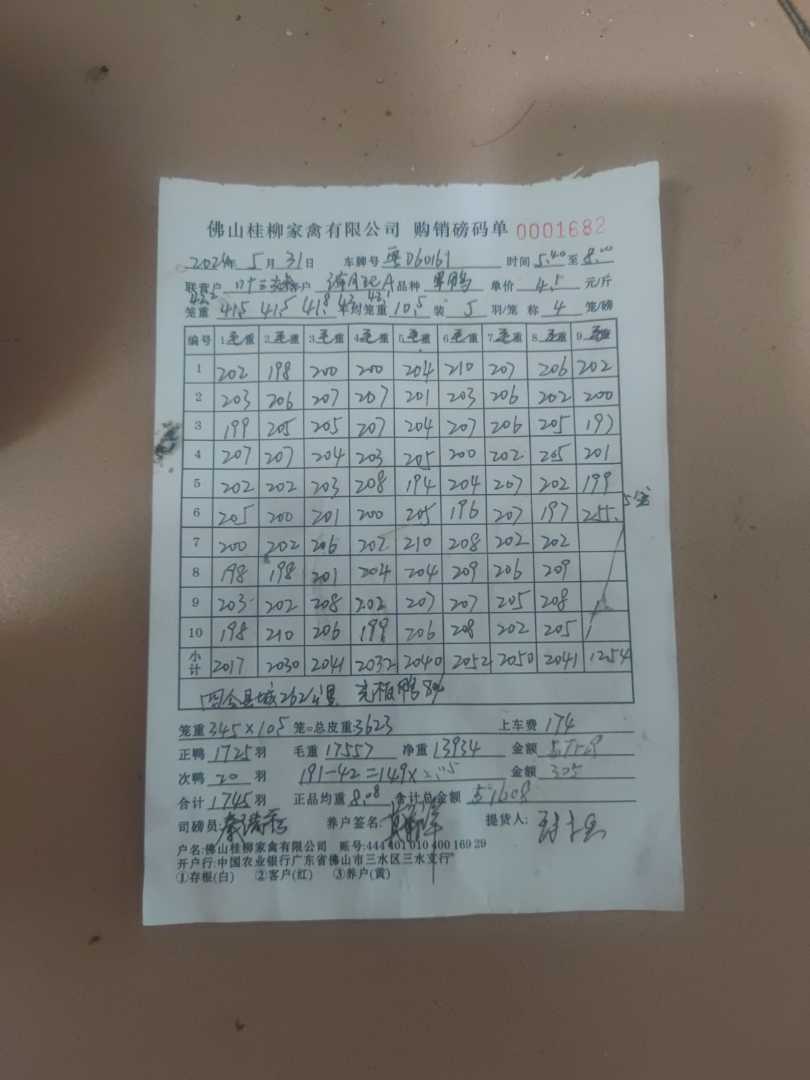 佛山桂柳家禽有限公司 购销磅码单 0001682
2024年 5月31日 车牌号 粤D60161 时间 5.40 至 8.00
联营户 养户 品种 单价 4.5 元/斤
43.2 43.1
笼重 41.5 41.5 41.8 43 平均笼重 10.5 装 5 羽/笼 称 4 笼/磅
编号 1毛重 2毛重 3毛重 4毛重 5毛重 6毛重 7毛重 8毛重 9毛重
1 202 198 200 200 204 210 207 206 202
2 203 206 207 207 201 203 206 202 200
3 199 205 205 207 204 207 206 205 197
4 207 207 204 203 205 200 202 205 201
5 202 202 203 208 194 204 207 202 199
6 205 200 201 200 205 196 207 197 255. 5笼
7 200 202 206 202 210 208 202 202
8 198 198 201 204 204 209 206 209
9 203 202 208 202 207 207 205 208
10 198 210 206 199 206 208 202 205
小计 2017 2030 2041 2032 2040 2052 2050 2041 1254
四会县城262公里
笼重 345×10.5 笼=总皮重:3623 上车费 174
正鸭 1725 羽 毛重 17557 净重 13934 金额
次鸭 20 羽 191-42=149× 金额 305
合计 1745 羽 正品均重 8.08 合计总金额 51608
司磅员: 养户签名: 提货人:
户名:佛山桂柳家禽有限公司 账号:444 401 010 400 169 29
开户行:中国农业银行广东省佛山市三水区三水支行
①存根(白) ②客户(红) ③养户(黄)